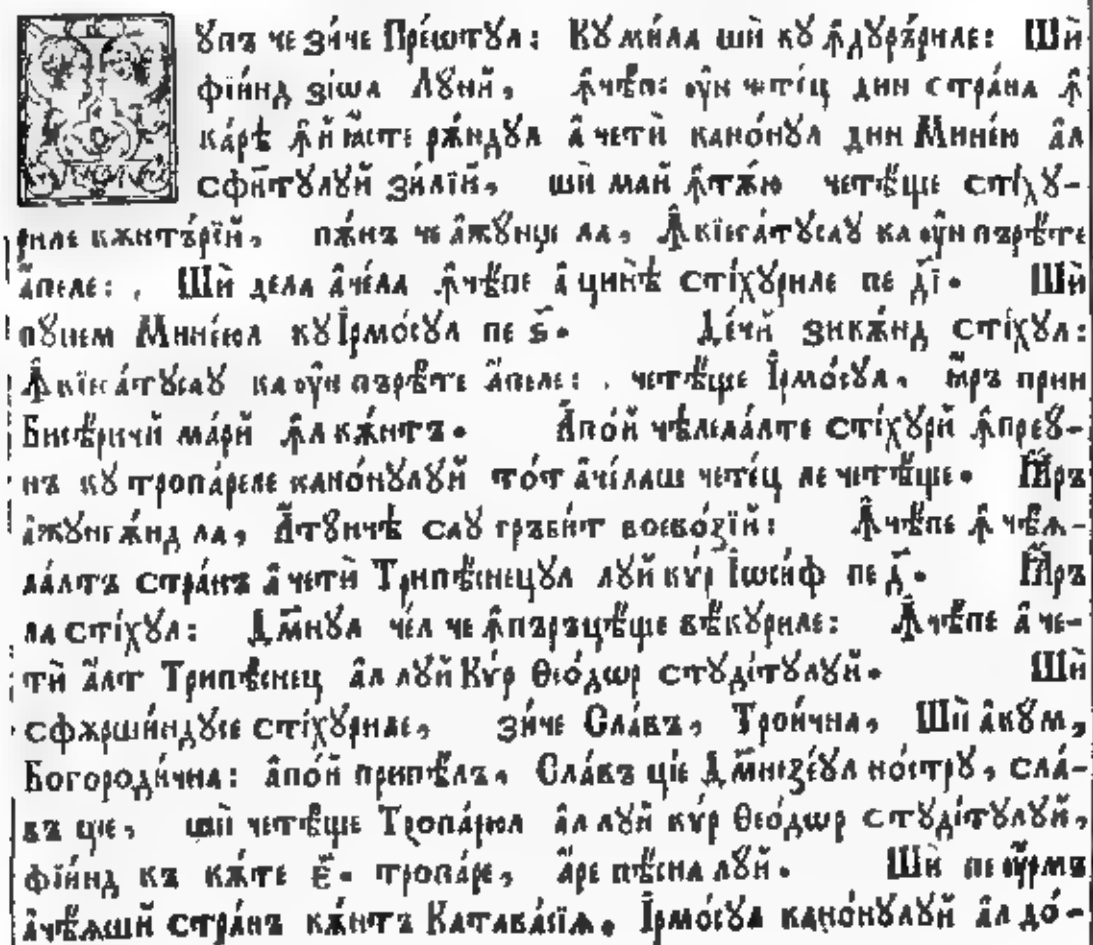 Ꙋпъ че зи́че Прео́тꙋл: Кꙋ ми́ла шѝ кꙋ ꙟ҆дꙋръ́риле: Шѝ
фїи́нд зі́ѡа Лꙋнй, ꙟ҆чѣ́пе оу҆́н четéц дин стрáна ꙟ҆
кáрѣ ꙟ҆́й ꙗ҆́сте рѫ́ндꙋл а҆ четѝ канóнꙋл дин Минéю а҆л
сфи́нтꙋлꙋй зи́лїй, шѝ май ꙟ҆тѫ́ю четѣ́ще стіхꙋ-
риле кѫнтъ́рїй, пѫ́нъ че а҆жꙋ́нще ла, Ꙟ҆ кїегáтꙋсаꙋ ка оу҆́н пъре́те
а҆́пеле: Шѝ дела а҆чéла ꙟ҆чѣ́пе а҆ цинѣ̀ стіхꙋ́риле пе д҃і. Шѝ
пꙋнем Минéюл кꙋ І҆рмóсꙋл пе ѕ҃. Дéчй зикѫ́нд стіхꙋл:
Ꙟ҆ кїегáтꙋсаꙋ ка оу҆́н пърѣ́те а҆́пеле: четѣ́ще І҆рмóсꙋл, ꙗ҆́ръ прин
Бисѣ́ричй мáрй ꙟ҆л кѫ́нтъ. А҆пóй чѣлелáлте стіхꙋрй ꙟ҆преꙋ-
нъ кꙋ тропáреле канóнꙋлꙋй тóт а҆чéлаш четéц ле четѣ́ще. Ꙗ҆́ръ
а҆жꙋнгѫ́нд ла, А҆тꙋ́нчѣ саꙋ гръби́т воевóзїй: Ꙟ҆чѣ́пе ꙟ҆ чѣѧ-
лáлтъ стрáнъ а҆ четѝ Трипѣ́снецꙋл лꙋ́й кѵ́р І҆ѡси́ф пе д҃. Ꙗ҆́ръ
ла стіхꙋл: Дм҃нꙋл чéл че ꙟ҆пъръцѣ́ще вѣ́кꙋриле: Ꙟ҆чѣ́пе а҆ че-
тѝ а҆́лт Трипѣ́снец а҆л лꙋ́й Кѵ́р Ѳеóдѡр стꙋді́тꙋлꙋй. Шѝ
сфѫрши́ндꙋсе стіхꙋ́риле, зи́че Слáвъ, Трои́чна, Шѝ а҆кꙋ́м,
Богороди́чна: а҆пóй припѣ́лъ, Слáвъ цїе Дм҃незéꙋл нóстрꙋ, слá-
въ цїе, шѝ четѣ́ще Тропáрюл а҆л лꙋ́й кѵ́р Ѳеóдѡр стꙋді́тꙋлꙋй,
фїи́нд къ кѫ́те е҃. тропáре, а҆́ре пѣ́сна лꙋ́й. Шѝ пе оу҆́рмъ
а҆чѣѧшй стрáнъ кѫ́нтъ Катавáсїѧ. І҆рмóсꙋл канóнꙋлꙋй а҆л дó-